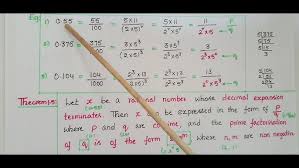 Eg:
1) 0.55 = 55/100 = 5×11/(2×5)² = 5×11/2²×5² = 11/2²×5 p/q
2) 0.375 = 375/1000 = 3×5³/(2×5)³ = 3×5³/2³×5³ = 3/2³
3) 0.104 = 104/1000 = 2³×13/(2×5)³ = 2³×13/2³×5³ = 13/5³
5|375
5|75
Theorem : Let x be a rational number whose decimal expansion
terminates. Then x can be expressed in the form of p/q
where p and q are coprime, and the prime factorisation
of q is of the form where n, m are non negative